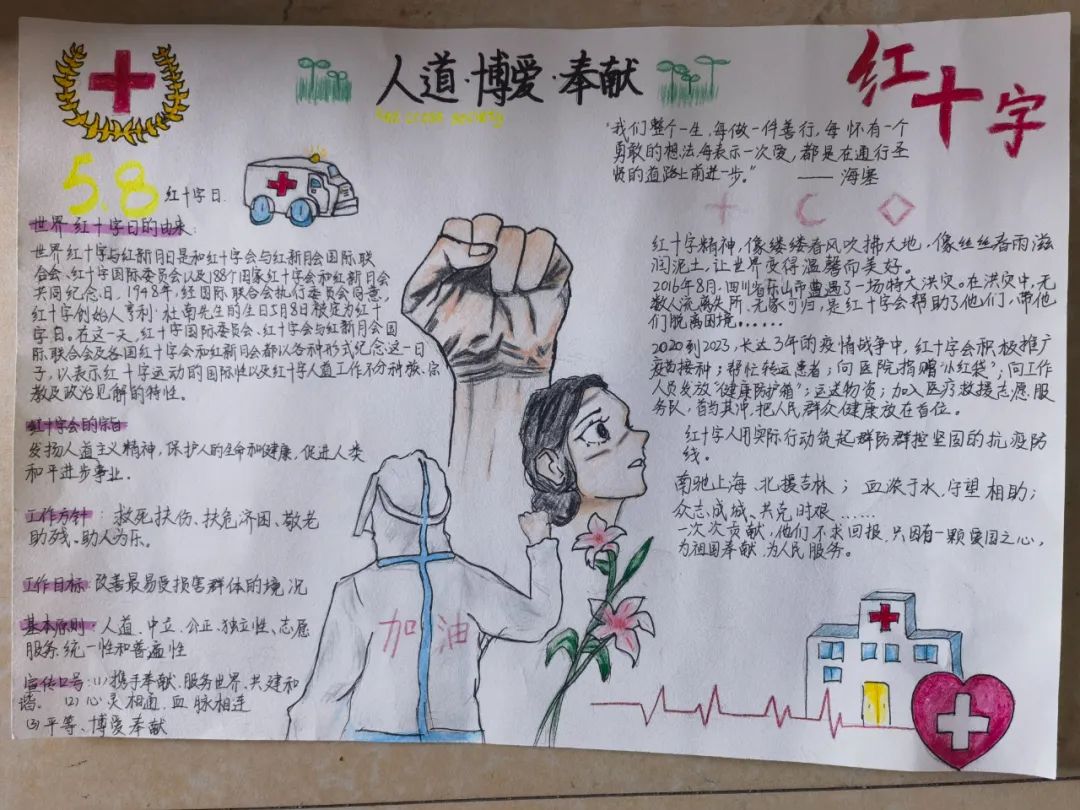 人道·博爱·奉献
Red cross society
红十字
5.8
红十字日
世界红十字日的由来:
世界红十字与红新月日是和红十字会与红新月会国际联
合会、红十字国际委员会以及188个国家红十字会和红新月会
共同纪念日,1948年,经国际联合会执行委员会同意,
红十字创始人亨利·杜南先生的生日5月8日被定为红十
字日。在这一天,红十字国际委员会、红十字会与红新月会国
际联合会及各国红十字会和红新月会都以各种形式纪念这一日
子,以表示红十字运动的国际性以及红十字人道工作不分种族、宗
教及政治见解的特性。
红十字会的宗旨
发扬人道主义精神,保护人的生命和健康,促进人类
和平进步事业。
工作方针:救死扶伤、扶危济困、敬老
助残、助人为乐。
工作目标:改善最易受损害群体的境况
基本原则:人道、中立、公正、独立性、志愿
服务、统一性和普遍性
宣传口号:(1)携手奉献、服务世界、共建和
谐。 (2)心灵相通,血脉相连
(3)平等、博爱奉献
"我们整个一生,每做一件善行,每怀有一个
勇敢的想法,每表示一次爱,都是在通行圣
贤的道路上前进一步。" ——海塞
红十字精神,像缕缕春风吹拂大地,像丝丝春雨滋
润泥土,让世界变得温馨而美好。
2016年8月,四川省乐山市遭遇了一场特大洪灾。在洪灾中,无
数人流离失所、无家可归,是红十字会帮助了他们,带他
们脱离困境......
2020到2023,长达3年的疫情战争中,红十字会积极推广
疫苗接种;帮忙转运患者;向医院捐赠"小红袋";向工作
人员发放"健康防护箱";运送物资;加入医疗救援志愿服
务队,首当其冲,把人民群众健康放在首位。
红十字人用实际行动筑起群防群控坚固的抗疫防
线。
南驰上海、北援吉林;血浓于水,守望相助;
众志成城、共克时艰......
一次次贡献,他们不求回报,只因有一颗爱国之心,
为祖国奉献,为人民服务。
加油